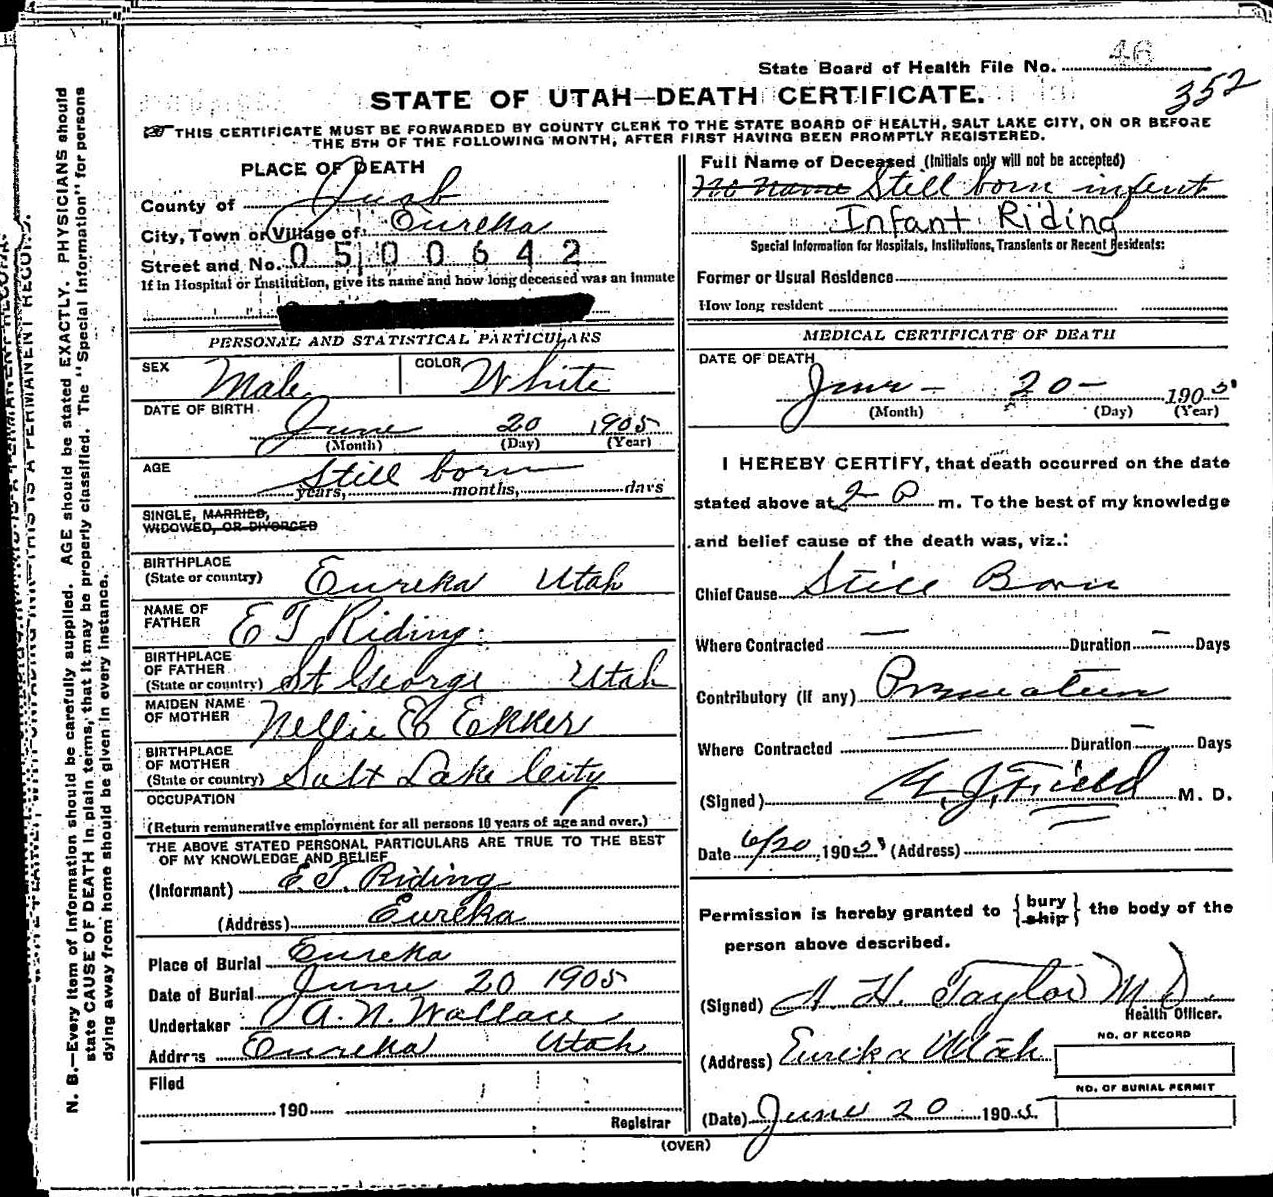 State Board of Health File No. 46
352
STATE OF UTAH—DEATH CERTIFICATE.
THIS CERTIFICATE MUST BE FORWARDED BY COUNTY CLERK TO THE STATE BOARD OF HEALTH, SALT LAKE CITY, ON OR BEFORE
THE 5TH OF THE FOLLOWING MONTH, AFTER FIRST HAVING BEEN PROMPTLY REGISTERED.
PLACE OF DEATH
County of Juab
City, Town or Village of Eureka
Street and No. 0500642
If in Hospital or Institution, give its name and how long deceased was an inmate
PERSONAL AND STATISTICAL PARTICULARS
SEX Male COLOR White
DATE OF BIRTH June 20 1905
(Month) (Day) (Year)
AGE Still born
years, months, days
SINGLE, MARRIED,
WIDOWED, OR DIVORCED
BIRTHPLACE
(State or country) Eureka Utah
NAME OF
FATHER E T Riding
BIRTHPLACE
OF FATHER
(State or country) St George Utah
MAIDEN NAME
OF MOTHER Nellie E Ekker
BIRTHPLACE
OF MOTHER
(State or country) Salt Lake City
OCCUPATION
(Return remunerative employment for all persons 10 years of age and over.)
THE ABOVE STATED PERSONAL PARTICULARS ARE TRUE TO THE BEST
OF MY KNOWLEDGE AND BELIEF
(Informant) E. T. Riding
(Address) Eureka
Place of Burial Eureka
Date of Burial June 20 1905
Undertaker A. N. Wallace
Address Eureka Utah
Filed
190
Registrar
Full Name of Deceased (Initials only will not be accepted)
No name Still born infent
Infant Riding
Special Information for Hospitals, Institutions, Transients or Recent Residents:
Former or Usual Residence
How long resident
MEDICAL CERTIFICATE OF DEATH
DATE OF DEATH
June - 20 - 1905
(Month) (Day) (Year)
I HEREBY CERTIFY, that death occurred on the date
stated above at 2 P m. To the best of my knowledge
and belief cause of the death was, viz.:
Chief Cause Still Born
Where Contracted — Duration — Days
Contributory (if any)
Where Contracted — Duration — Days
(Signed) J. Field M. D.
Date 6/20 1905 (Address)
Permission is hereby granted to {bury ship} the body of the
person above described.
(Signed) A H. Taylor M D.
Health Officer.
(Address) Eureka Utah
NO. OF RECORD
NO. OF BURIAL PERMIT
(Date) June 20 1905
(OVER)
N. B.—Every item of information should be carefully supplied. AGE should be stated EXACTLY. PHYSICIANS should
state CAUSE OF DEATH in plain terms, that it may be properly classified. The "Special Information" for persons
dying away from home should be given in every instance.